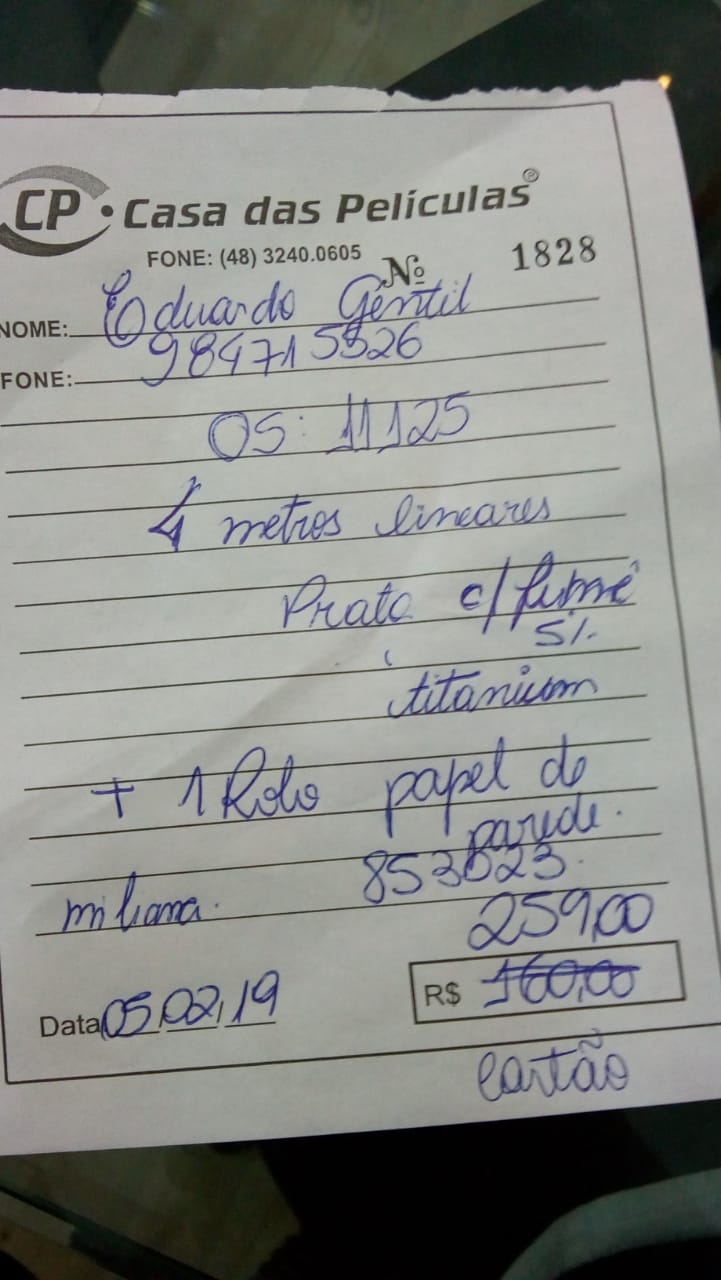 CP • Casa das Películas®
FONE: (48) 3240.0605 Nº 1828
NOME: Eduardo Gentil
FONE: 984715326
OS: 11125
4 metros lineares
Prata c/ fumê
5%
titanium
+ 1 Rolo papel de
parede.
853023.
miliana.
259,00
Data 05,02,19 R$ 160,00
cartão